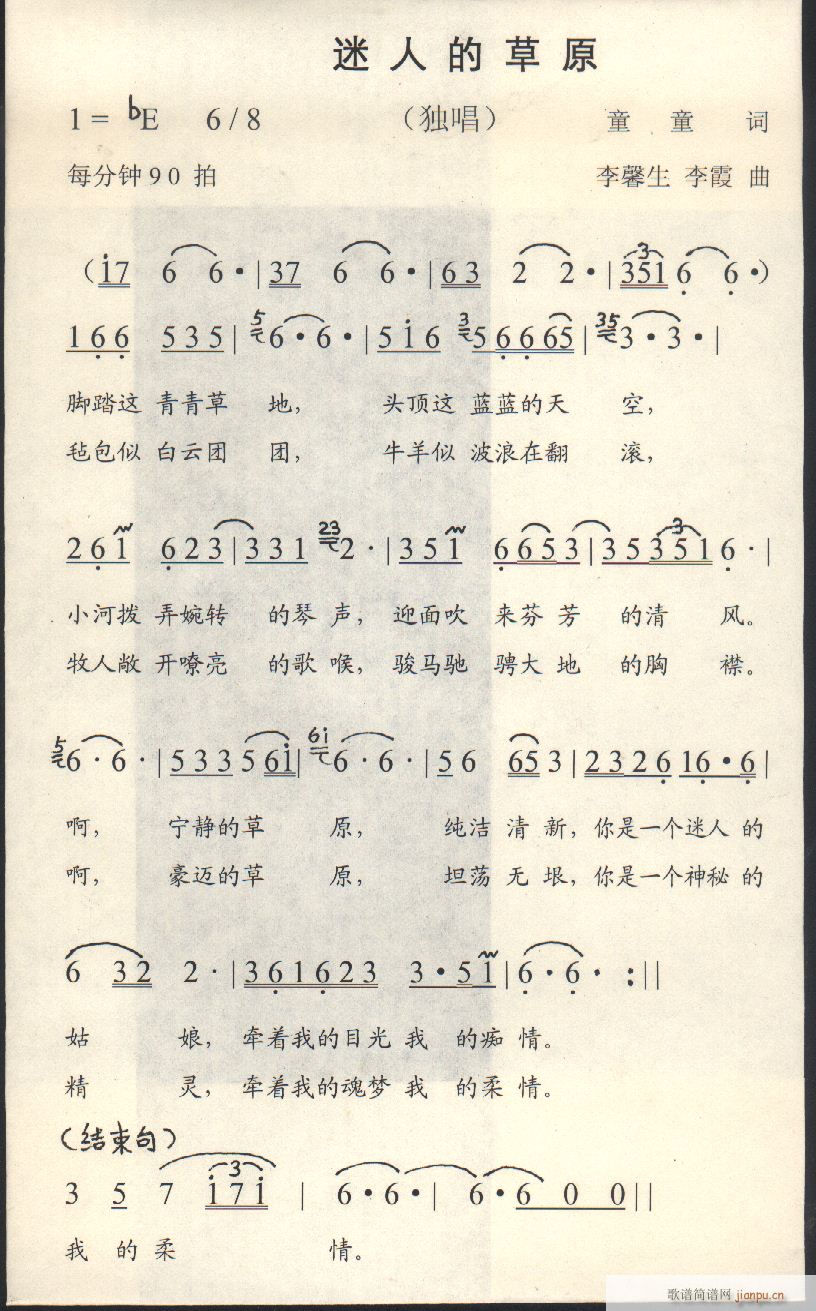 迷人的草原
1=♭E 6/8 （独唱） 童童 词
每分钟90拍 李馨生 李霞 曲
（i7 6 6·|37 6 6·|63 2 2·|351 6 6·）
166 535|5 6·6·|5i6 3 56665|35 3·3·|
脚踏这 青青草 地， 头顶这 蓝蓝的天 空，
毡包似 白云团 团， 牛羊似 波浪在翻 滚，
261 623|331 23 2·|351 6653|353516·|
小河拨 弄婉转 的琴声，迎面吹 来芬芳 的清 风。
牧人敞 开嘹亮 的歌喉，骏马驰 骋大地 的胸 襟。
5 6·6·|533 56i|6i 6·6·|56 653|2326 16·6|
啊， 宁静的草 原， 纯洁清新，你是一个迷人的
啊， 豪迈的草 原， 坦荡无垠，你是一个神秘的
6 32 2·|361623 3·51|6·6· :||
姑 娘，牵着我的目光我 的痴情。
精 灵，牵着我的魂梦我 的柔情。
（结束句）
3 5 7 i7i | 6·6·| 6·6 0 0||
我 的柔 情。
歌谱简谱网 jianpu.cn